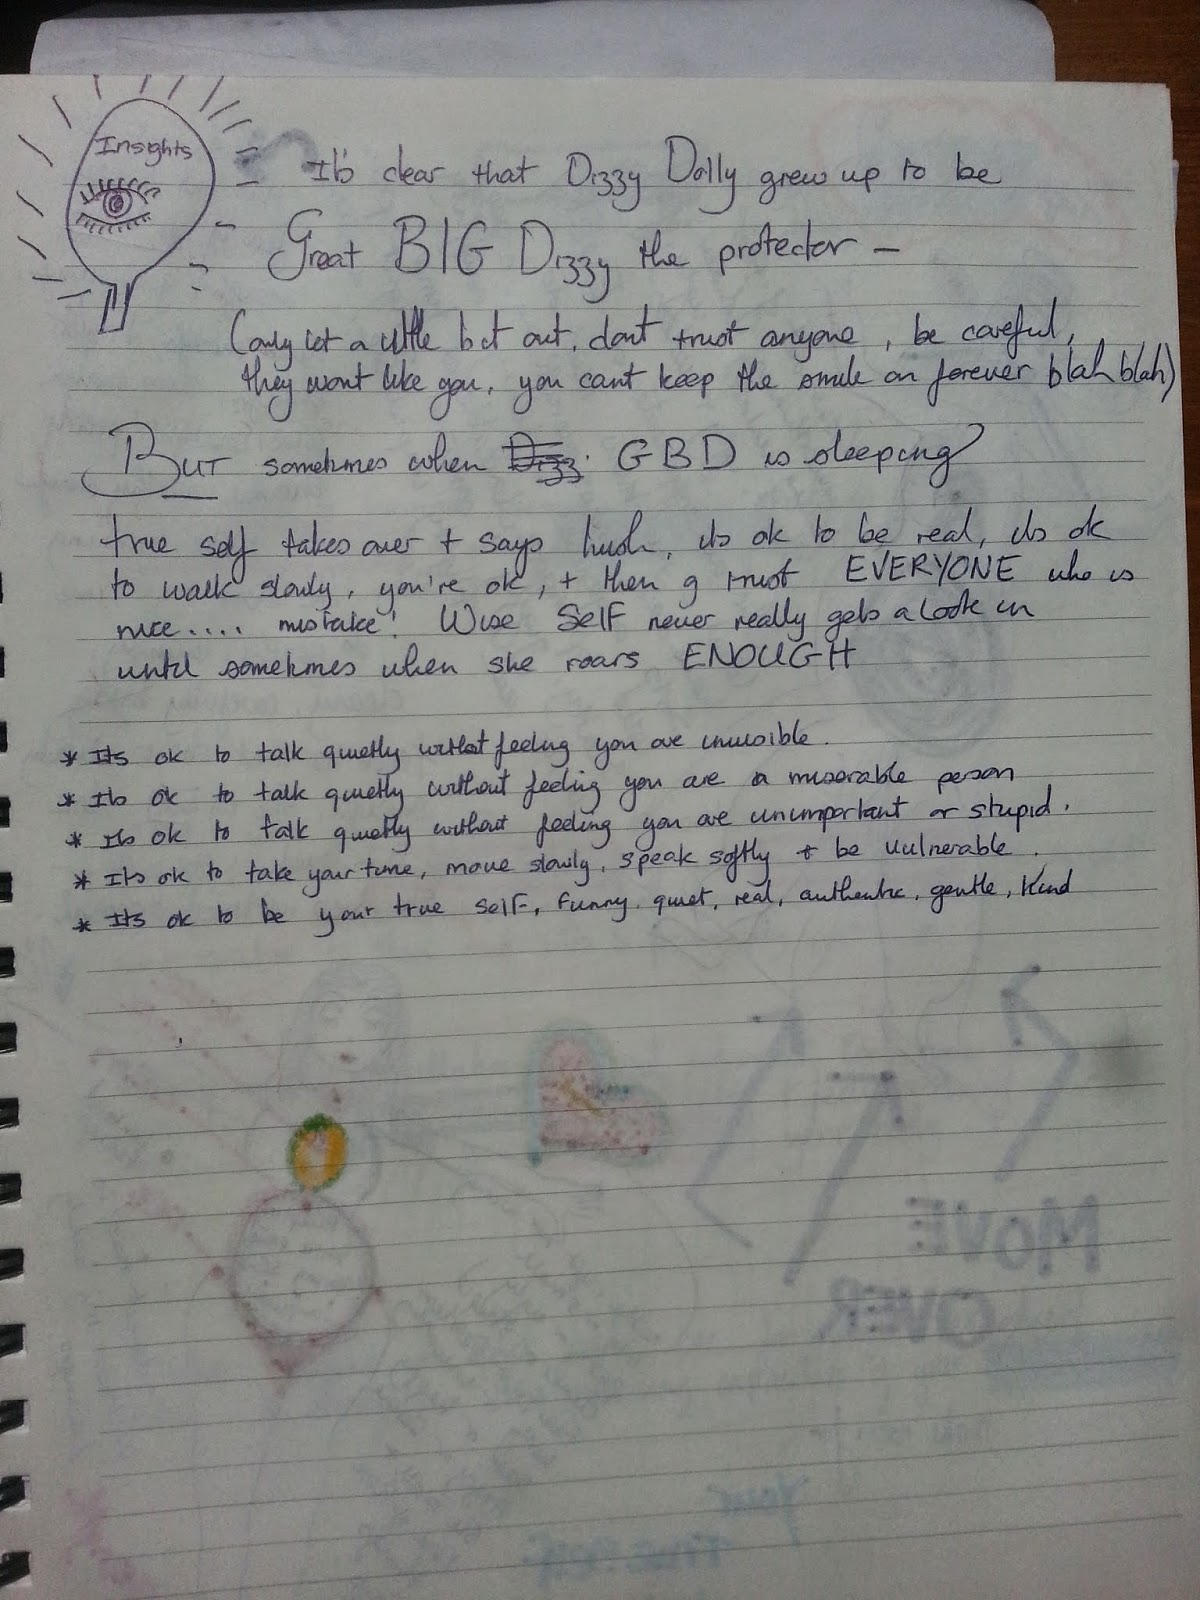 Insights
It's clear that Dizzy Dolly grew up to be
Great BIG Dizzy the protector –
(only let a little bit out, dont trust anyone, be careful,
they wont like you, you cant keep the smile on forever blah blah)
BUT sometimes when Dizz GBD is sleeping
true self takes over + says hush, its ok to be real, its ok
to walk slowly, you're ok, + then g trust EVERYONE who is
nice.... mistake! Wise Self never really gets a look in
until sometimes when she roars ENOUGH
* Its ok to talk quietly without feeling you are invisible.
* Its ok to talk quietly without feeling you are a miserable person
* Its ok to talk quietly without feeling you are unimportant or stupid.
* Its ok to take your time, move slowly, speak softly + be vulnerable.
* Its ok to be your true self, funny, quiet, real, authentic, gentle, kind
MOVE
OVER
Your